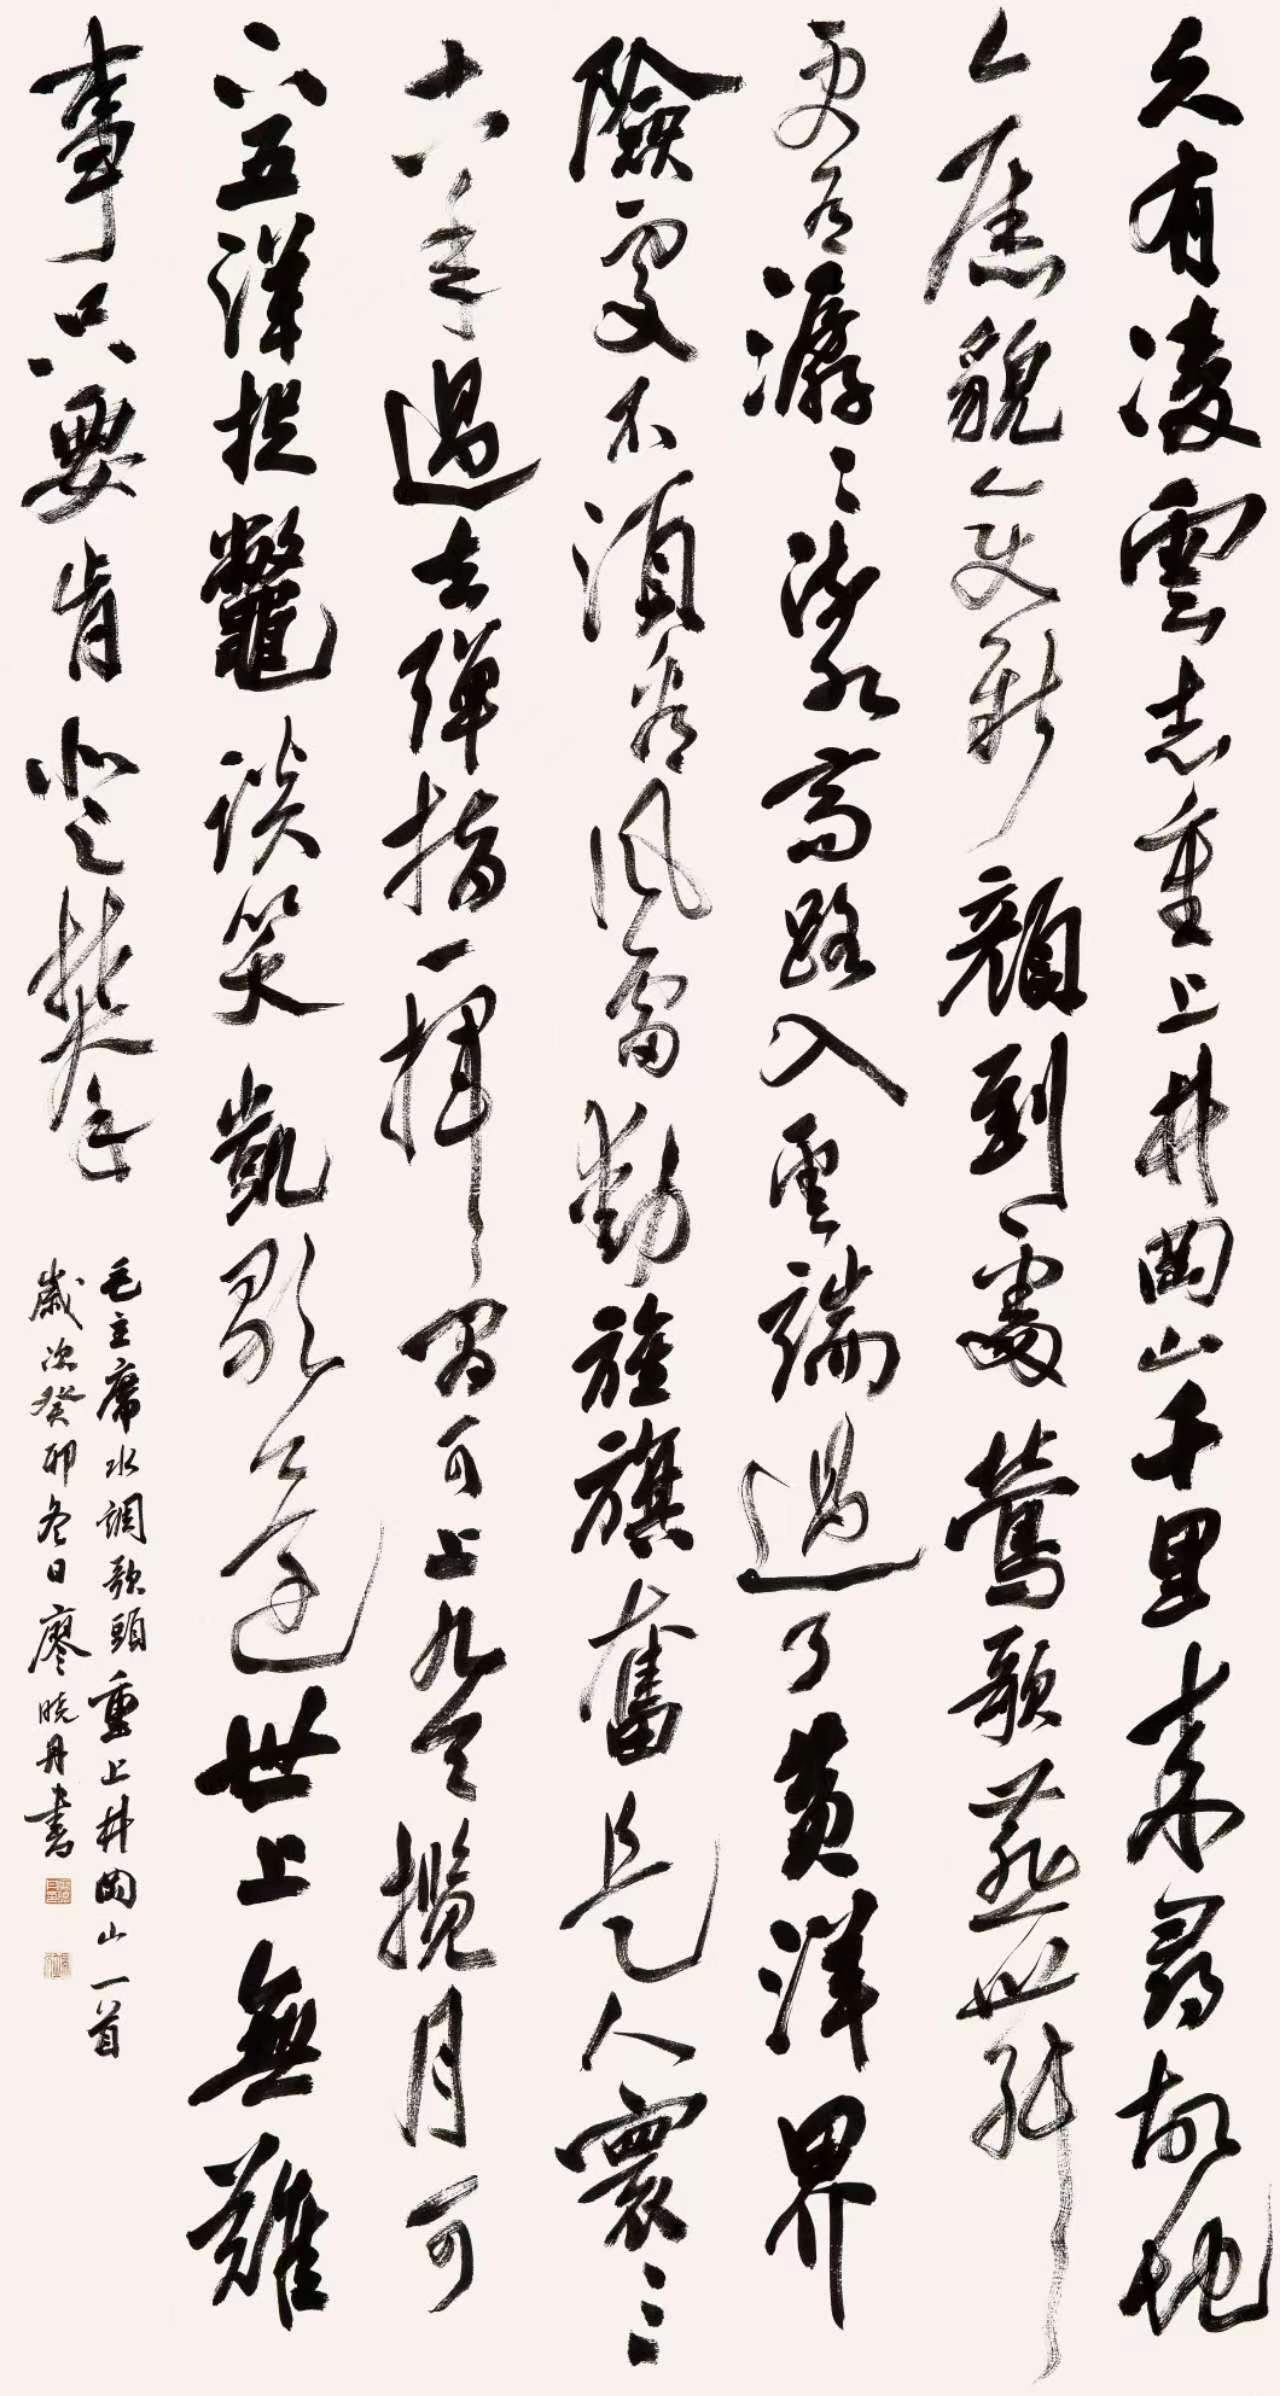 久有凌雲志重上井岡山千里来尋故地
舊貌變新顔到處鶯歌燕舞
更有潺〻流水高路入雲端過了黄洋界
險處不須看風雷動旌旗奮是人寰三
十八年過去彈指一揮間可上九天攬月可
下五洋捉鼈談笑凱歌還世上無難
事只要肯登攀
毛主席水調歌頭重上井岡山一首
歲次癸卯冬日廖曉丹書